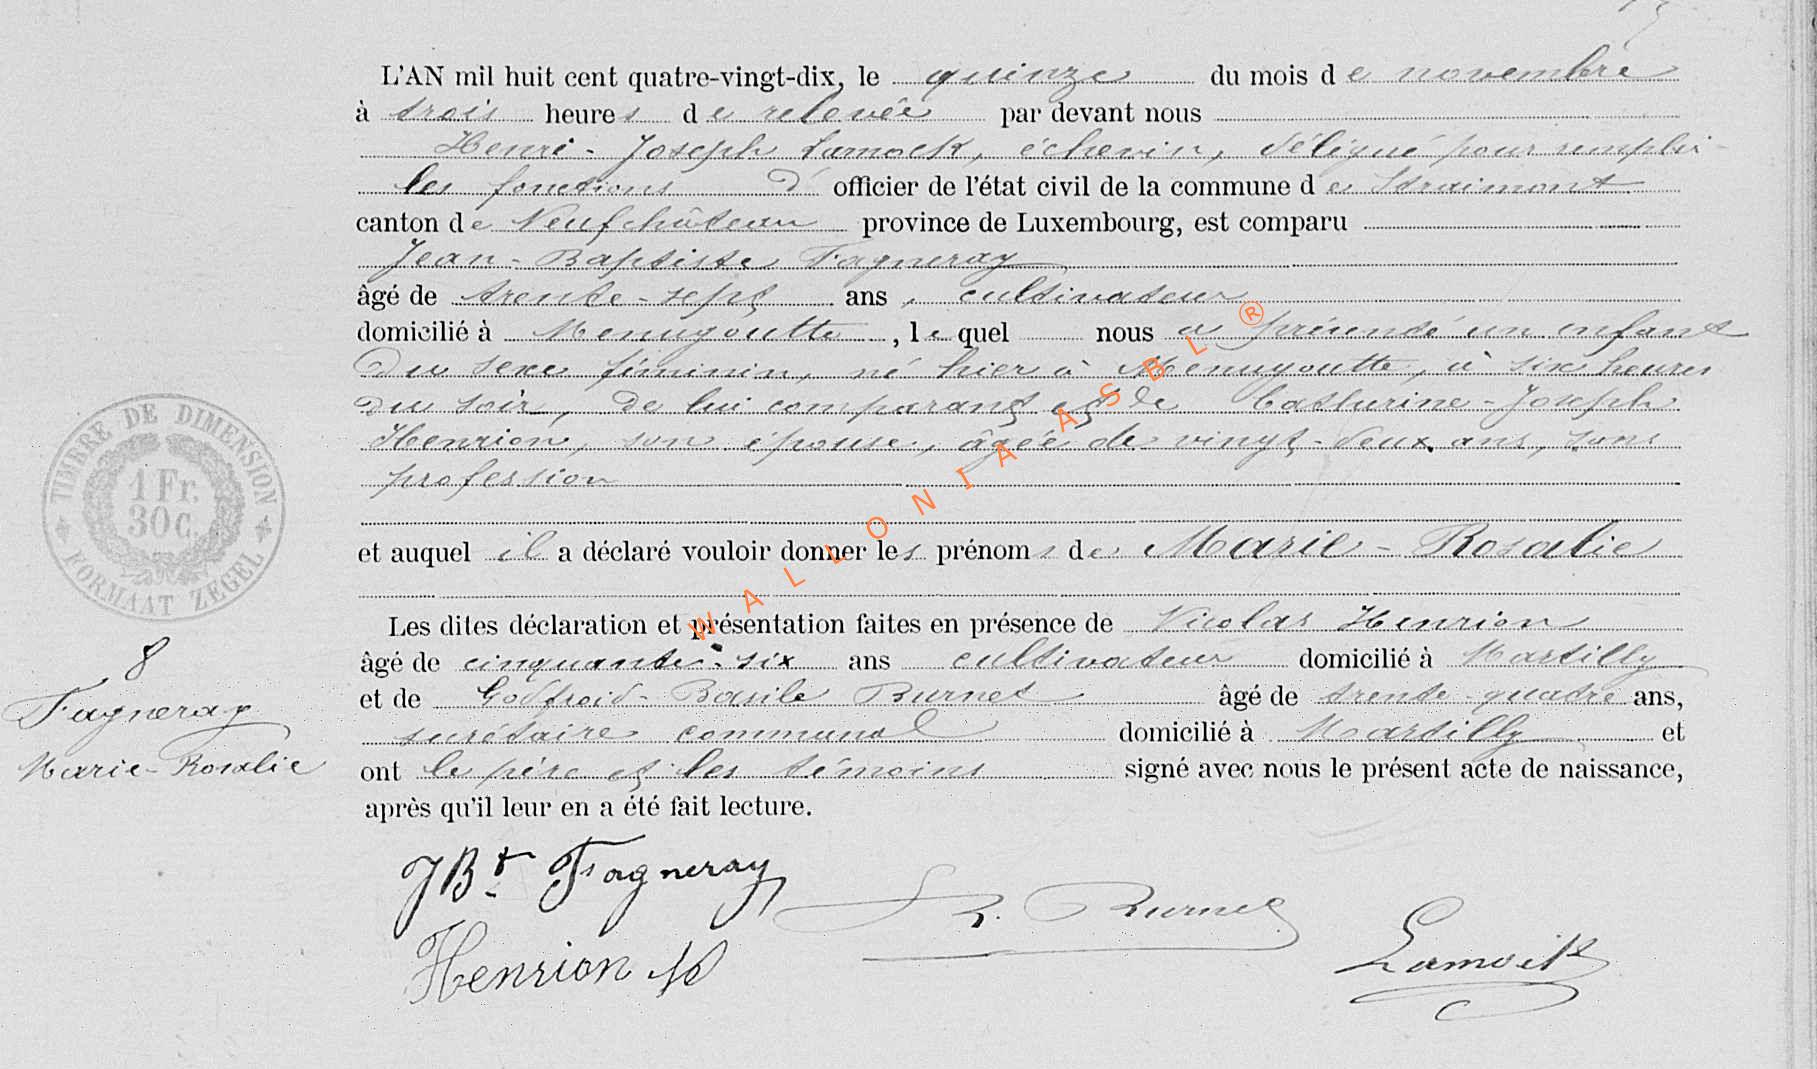 L'AN mil huit cent quatre-vingt-dix, le quinze du mois de novembre
à trois heures de relevée par devant nous
Henri-Joseph Lamock, échevin, délégué pour remplir
les fonctions d' officier de l'état civil de la commune de Straimont
canton de Neufchâteau province de Luxembourg, est comparu
Jean-Baptiste Fagneray
âgé de trente-sept ans, cultivateur
domicilié à Menugoutte, lequel nous a présenté un enfant
du sexe féminin, né hier à Menugoutte, à six heures
du soir, de lui comparant et de Catherine-Joseph
Henrion, son épouse, âgée de vingt-deux ans, sans
profession
et auquel il a déclaré vouloir donner les prénoms de Marie-Rosalie
Les dites déclaration et présentation faites en présence de Nicolas Henrion
âgé de cinquante-six ans cultivateur domicilié à Martilly
et de Godfroid-Basile Burnet âgé de trente-quatre ans,
secrétaire communal domicilié à Martilly et
ont le père et les témoins signé avec nous le présent acte de naissance,
après qu'il leur en a été fait lecture.
TIMBRE DE DIMENSION
1 Fr.
30 C.
FORMAAT ZEGEL
8
Fagneray
Marie-Rosalie
JBt Fagneray
B. Burnet
Henrion N
Lamock
WALLONIA ASBL ®